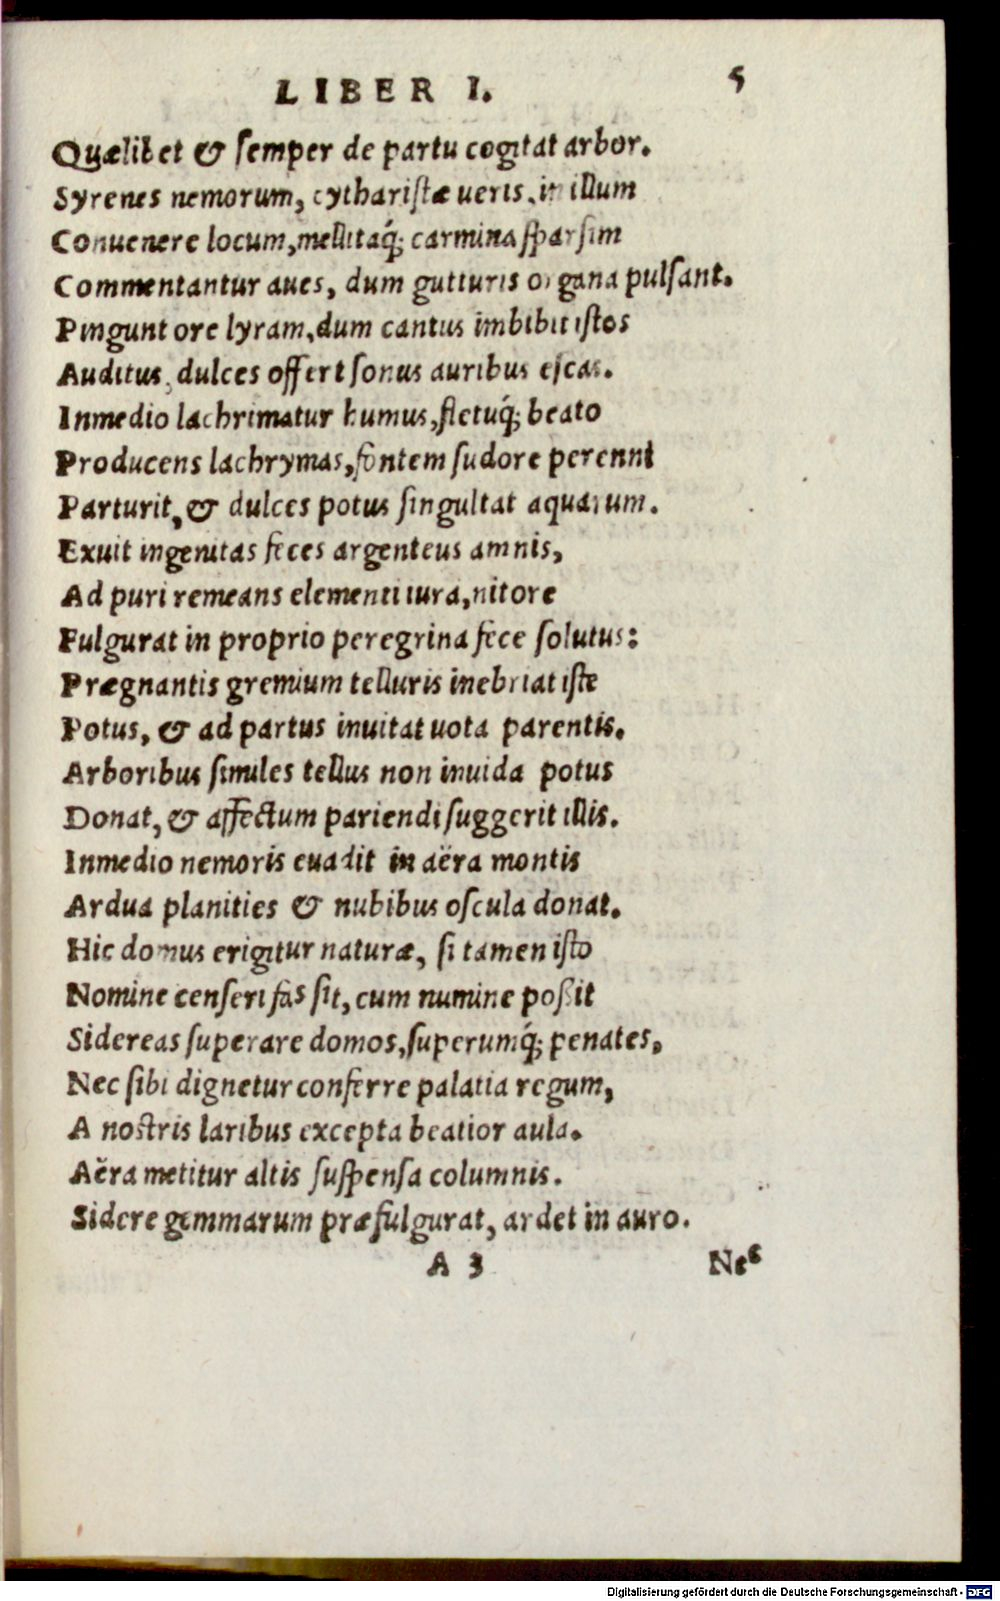 LIBER I. 5
Quælibet & ſemper de partu cogitat arbor.
Syrenes nemorum, cythariſtæ ueris, in illum
Conuenere locum, mellitaq́; carmina ſparſim
Commentantur aues, dum gutturis organa pulſant.
Pingunt ore lyram, dum cantus imbibit iſtos
Auditus, dulces offert ſonus auribus eſcas.
Inmedio lachrimatur humus, fletuq́; beato
Producens lachrymas, fontem ſudore perenni
Parturit, & dulces potus ſingultat aquarum.
Exuit ingenitas feces argenteus amnis,
Ad puri remeans elementi iura, nitore
Fulgurat in proprio peregrina fece ſolutus:
Prægnantis gremium telluris inebriat iſte
Potus, & ad partus inuitat uota parentis.
Arboribus ſimiles tellus non inuida potus
Donat, & affectum pariendi ſuggerit illis.
Inmedio nemoris euadit in aëra montis
Ardua planities & nubibus oſcula donat.
Hic domus erigitur naturæ, ſi tamen iſto
Nomine cenſeri fas ſit, cum numine poßit
Sidereas ſuperare domos, ſuperumq́; penates,
Nec ſibi dignetur conferre palatia regum,
A noſtris laribus excepta beatior aula.
Aëra metitur altis ſuſpenſa columnis.
Sidere gemmarum præfulgurat, ardet in auro.
A 3 Nec
Digitalisierung gefördert durch die Deutsche Forschungsgemeinschaft - DFG